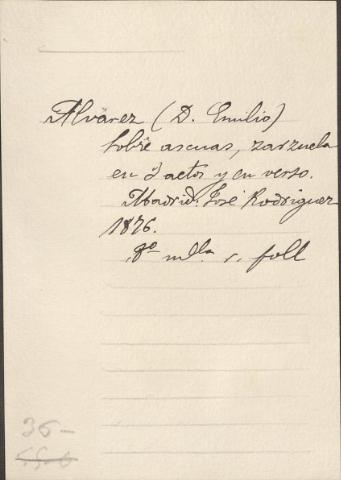 Alvarez (D. Emilio)
Sobre ascuas, zarzuela
en 3 actos y en verso.
Madrid. José Rodriguez
1876.
8º mlla r. foll
35-